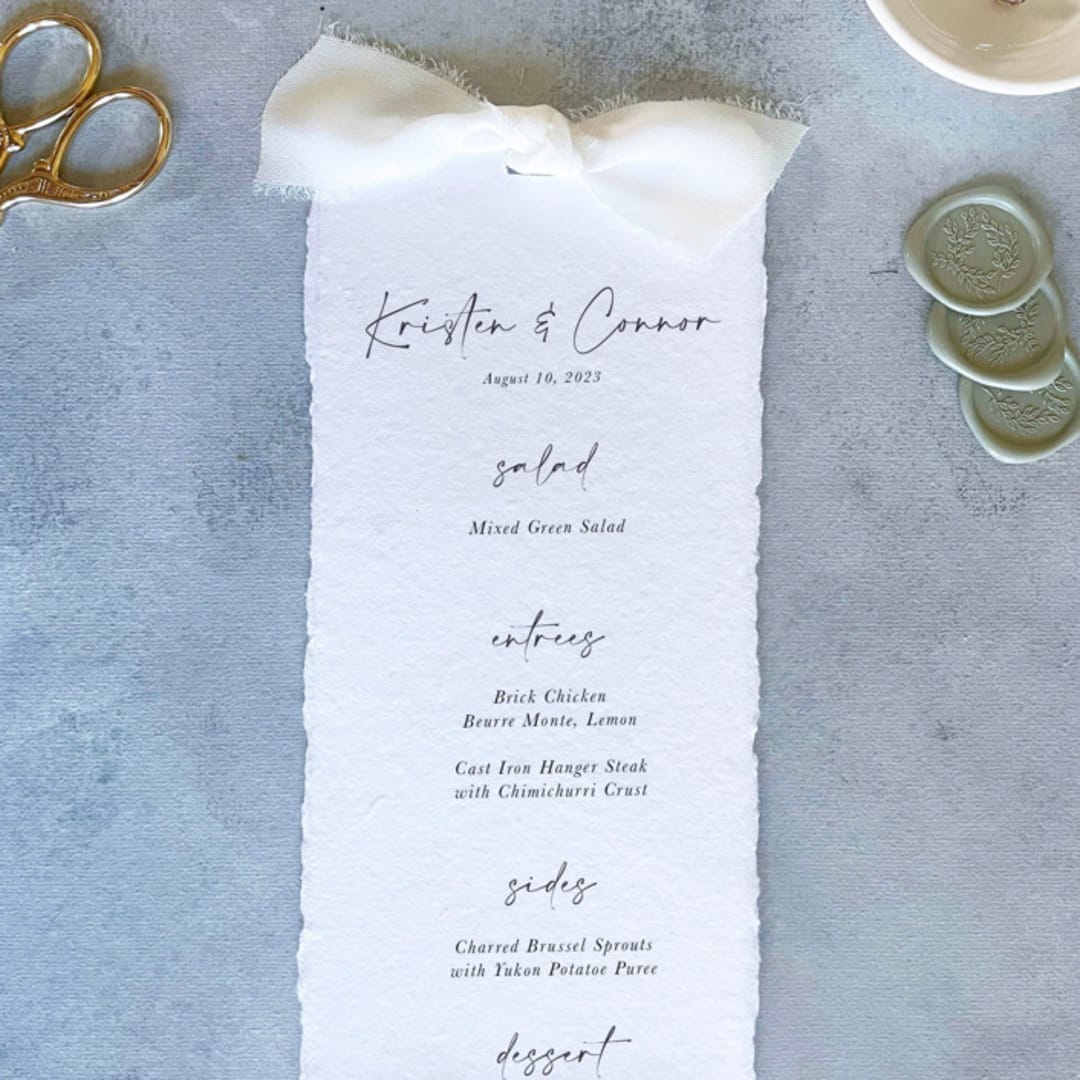 Kristen & Connor
August 10, 2023
salad
Mixed Green Salad
entrees
Brick Chicken
Beurre Monte, Lemon
Cast Iron Hanger Steak
with Chimichurri Crust
sides
Charred Brussel Sprouts
with Yukon Potatoe Puree
dessert